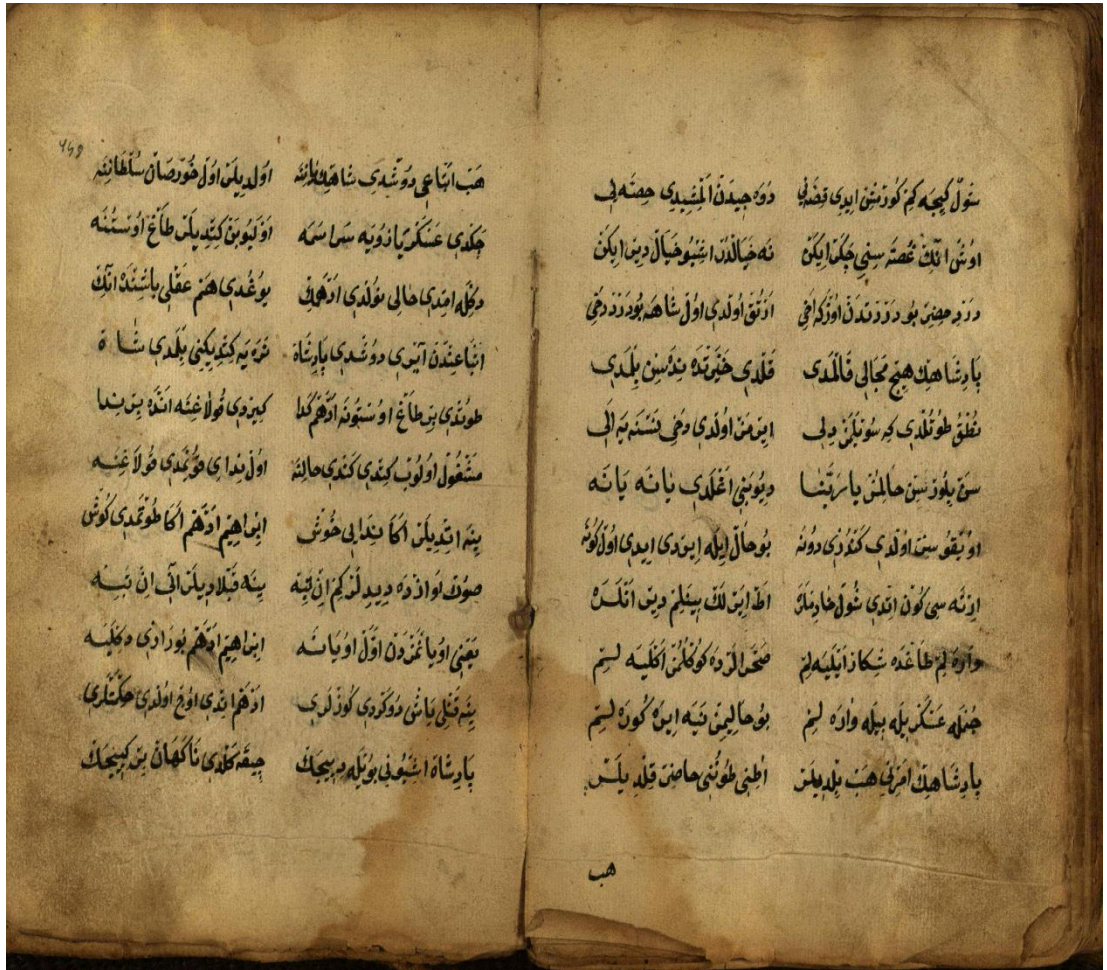 شول كيجه كم كورمش ايدى قصه لى دوه جيدن المشيدى حصه لى
اوش انك غصه سنى چكر ايكن نه خيالدر اشبو خيال دير ايكن
درد حصن بو درددندن اوزكه اخى ارتق اولدى اول شاهه بو درد دخى
پادشاهك هيچ مجالى قالمدى قلدى حيرتده نده سن بلمدى
نطق طوتلدى كه سويلمز دلى ايرمز اولدى دخى نسنه يه الى
سن بلورسن حالمى يا ربنا ديوبنى اغلدى يانه يانه
اويقوسز اولدى كندزى دونه بو حال ايله ايردى ايدى اول كونه
ارته سى كون اتدى شول خادملره اط ايرلك بينلم دير انلره
واره لم طاغده شكار ايليه لم صحرالرده كوكلمز اكليه لم
جمله عسكر بله بيله واره لم بو حاليمز نيه ايره كوره لم
پادشاهك امرنى هب بلديلر اطنى طوننى حاضر قلديلر
هب
هب اتباعى دوشدى شاهك اردنه اولديلر اول خورصان سلطاننه
چكدى عسكر يازويه سراسمه اوليوبن كتديلر طاغ اوستنه
دكله امدى حالى نولدى ادهمك يوغدى هم عقلى باشنده انك
اتباعندن آيرى دوشدى پادشاه نره يه كتديكنى بلمدى شاه
طوندى بر طاغ اوستونه ادهم كدا كيردى قولاغنه انده بر ندا
مشغول اولوب كندى كندى حالنه اول نداى قويمدى قولاغنه
ينه اتديلر اكا ندايى خوش ابراهيم ادهم اكا طوتمدى كوش
صوك اوازده ديديلر كم ان تنبه ينه قبلاديلر انى ان تنبه
يعنى اويانمزدن اول اويانه ابراهيم ادهم بوراذى دكليه
ينه قنلى ياش دوكردى كوزلرى ادهم اندى اوغ اولدى حكتلرى
پادشاه اشبونى بويله دييجك چيقه كلدى ناكهان بر كييجك